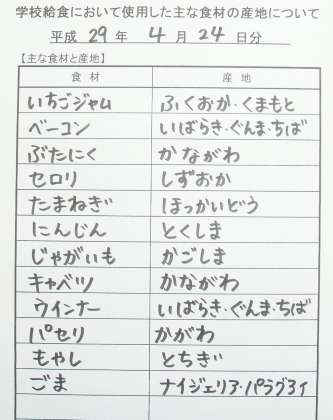 学校給食において使用した主な食材の産地について
平成 29 年 4 月 24 日分
【主な食材と産地】
食材 産地
いちごジャム ふくおか・くまもと
ベーコン いばらき・ぐんま・ちば
ぶたにく かながわ
セロリ しずおか
たまねぎ ほっかいどう
にんじん とくしま
じゃがいも かごしま
キャベツ かながわ
ウインナー いばらき・ぐんま・ちば
パセリ かがわ
もやし とちぎ
ごま ナイジェリア・パラグアイ